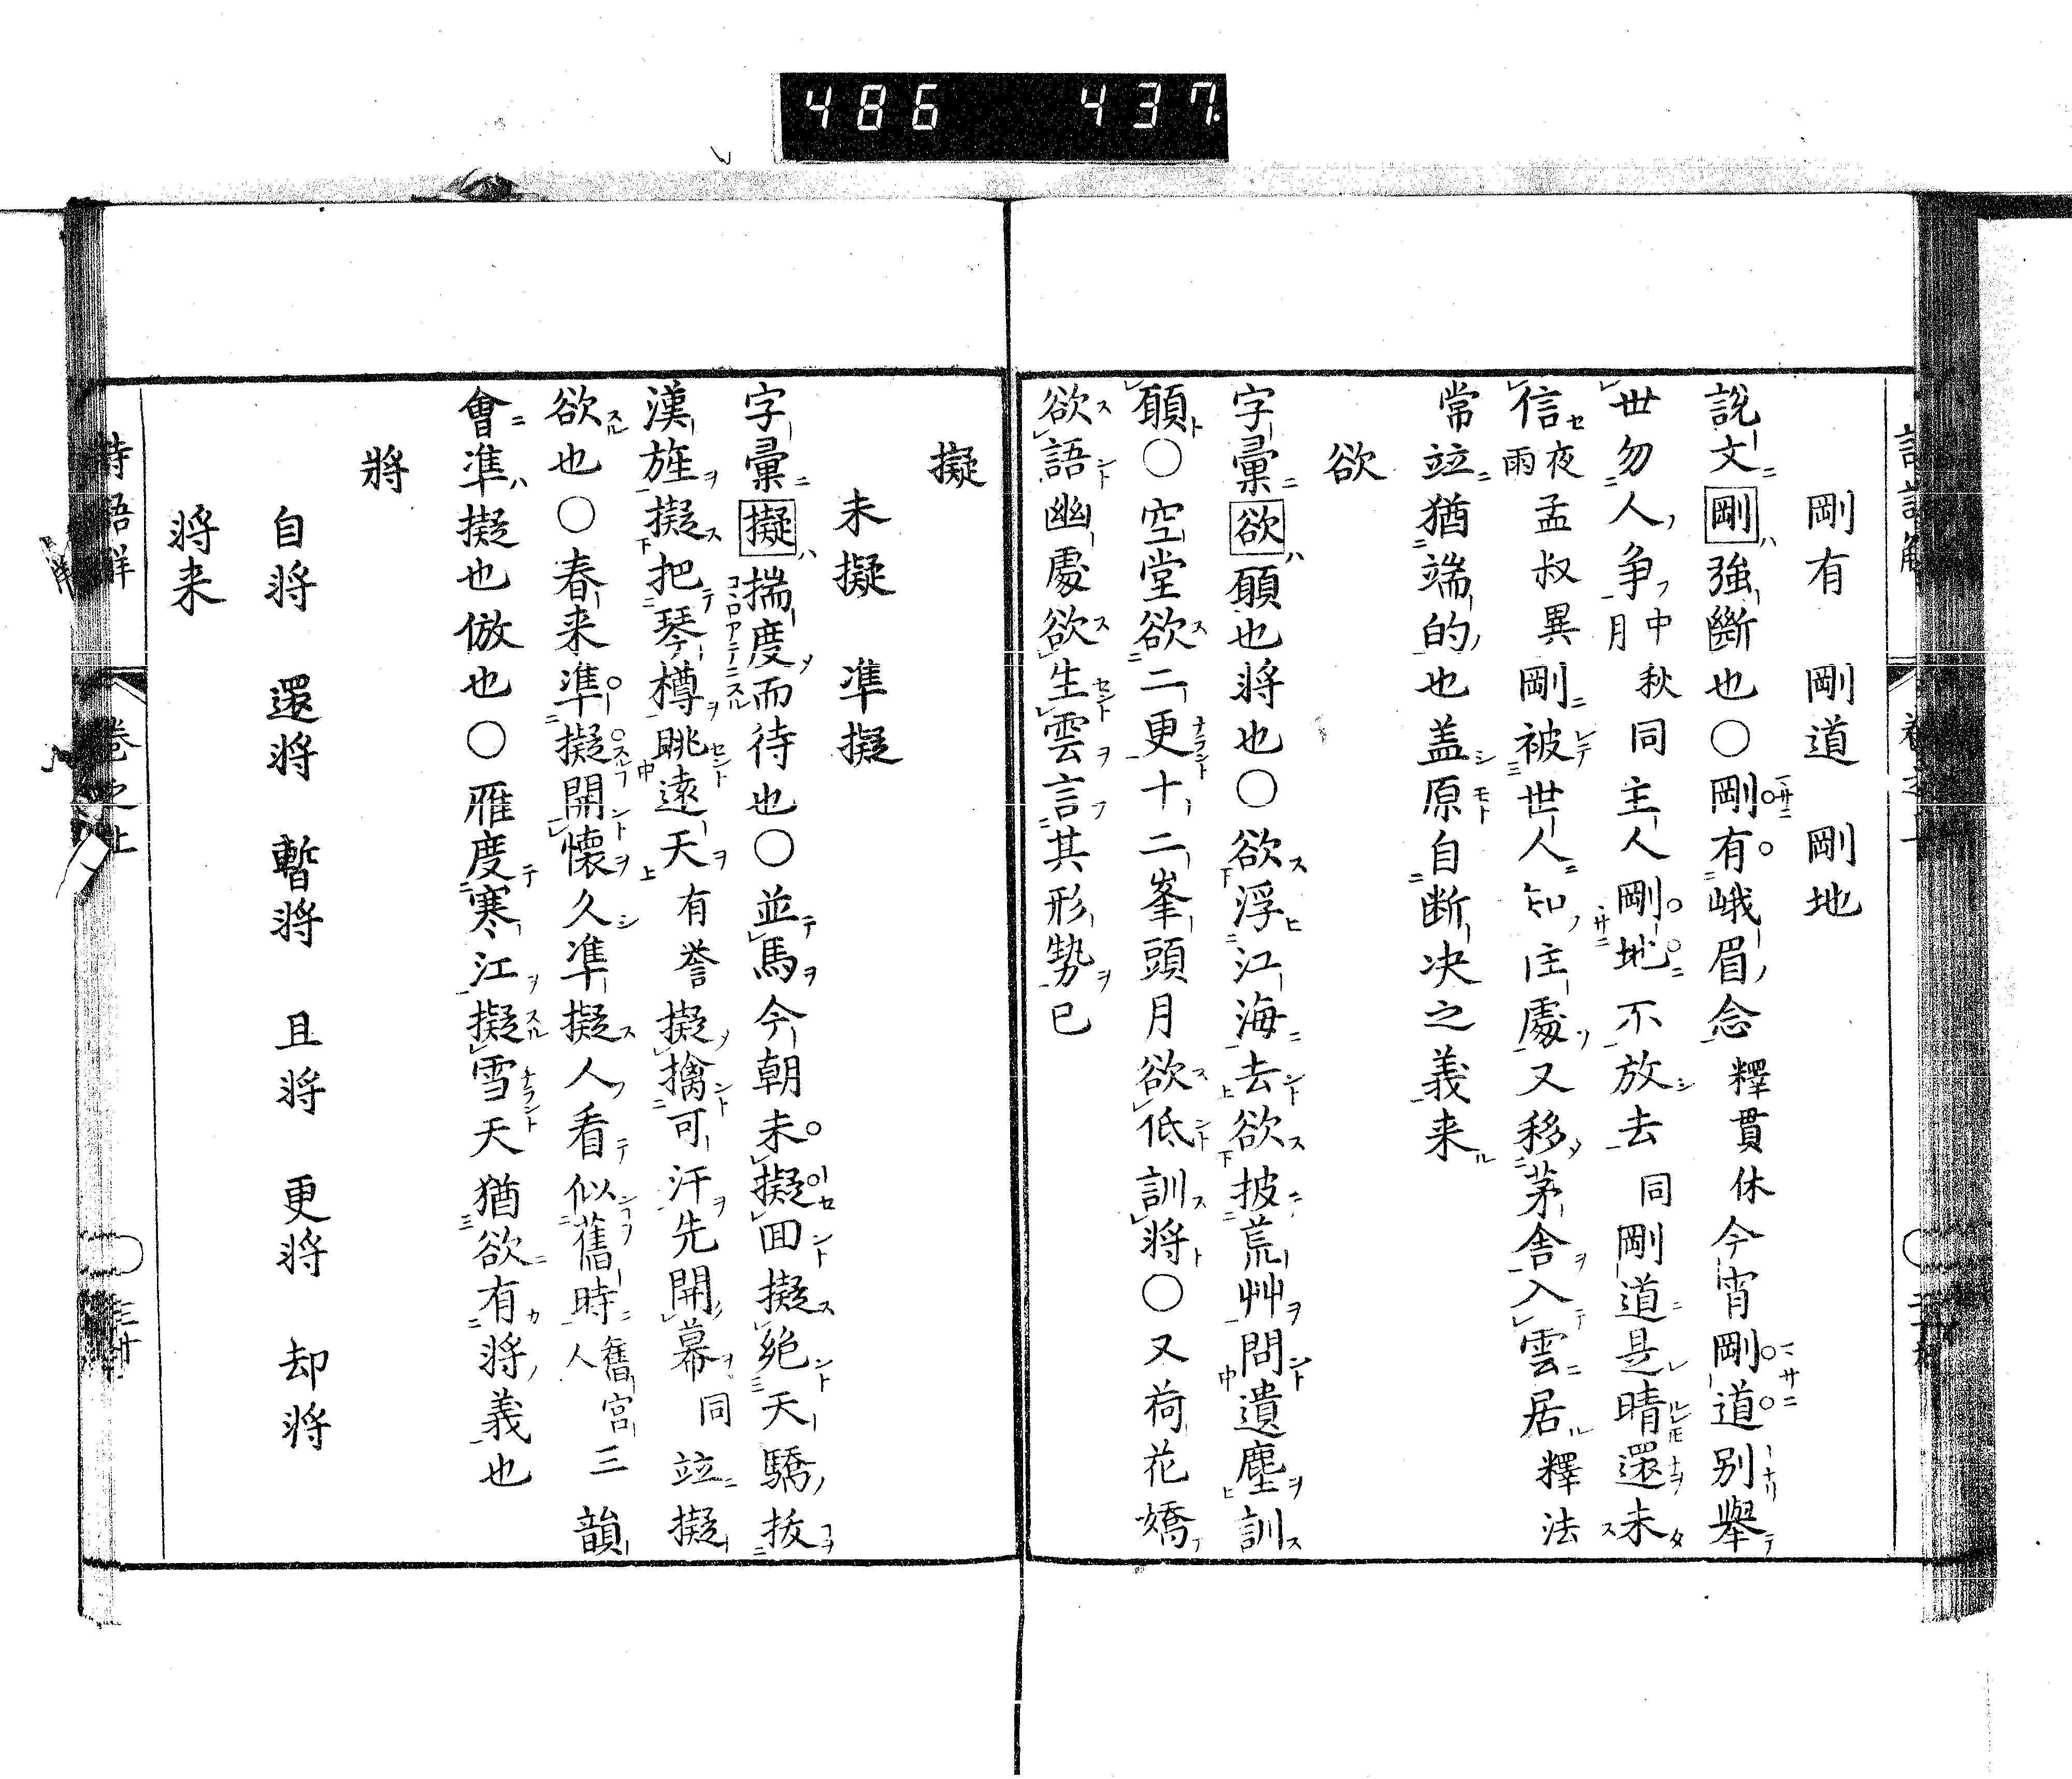 486 437
剛有 剛道 剛地
說文剛強斷也○剛有峨眉念 釋貫休 今宵剛道別舉
世勿人爭 中秋月 同 主人剛地不放去 同 剛道是晴還未
信 夜雨 孟叔異 剛被世人知住處又移茅舎入雲居 釋法
常 竝猶端的也盖原自断決之義来
欲
字彙欲願也將也○欲浮江海去欲披荒艸問遺塵訓
願○空堂欲二更十二峯頭月欲低訓將○又荷花嬌
欲語幽處欲生雲言其形勢已
擬
未擬 準擬
字彙擬揣度而待也○並馬今朝未擬回擬絶天驕拔
漢旌擬把琴樽眺遠天 有誉 擬擒可汗先開幕 同 竝擬
欲也○春来準擬開懷久準擬人看似舊時 舊宮人 三韻
會準擬也倣也○雁度寒江擬雪天猶欲有將義也
將
自將 還將 暫將 且將 更將 却將
將来
詩語解 卷之上